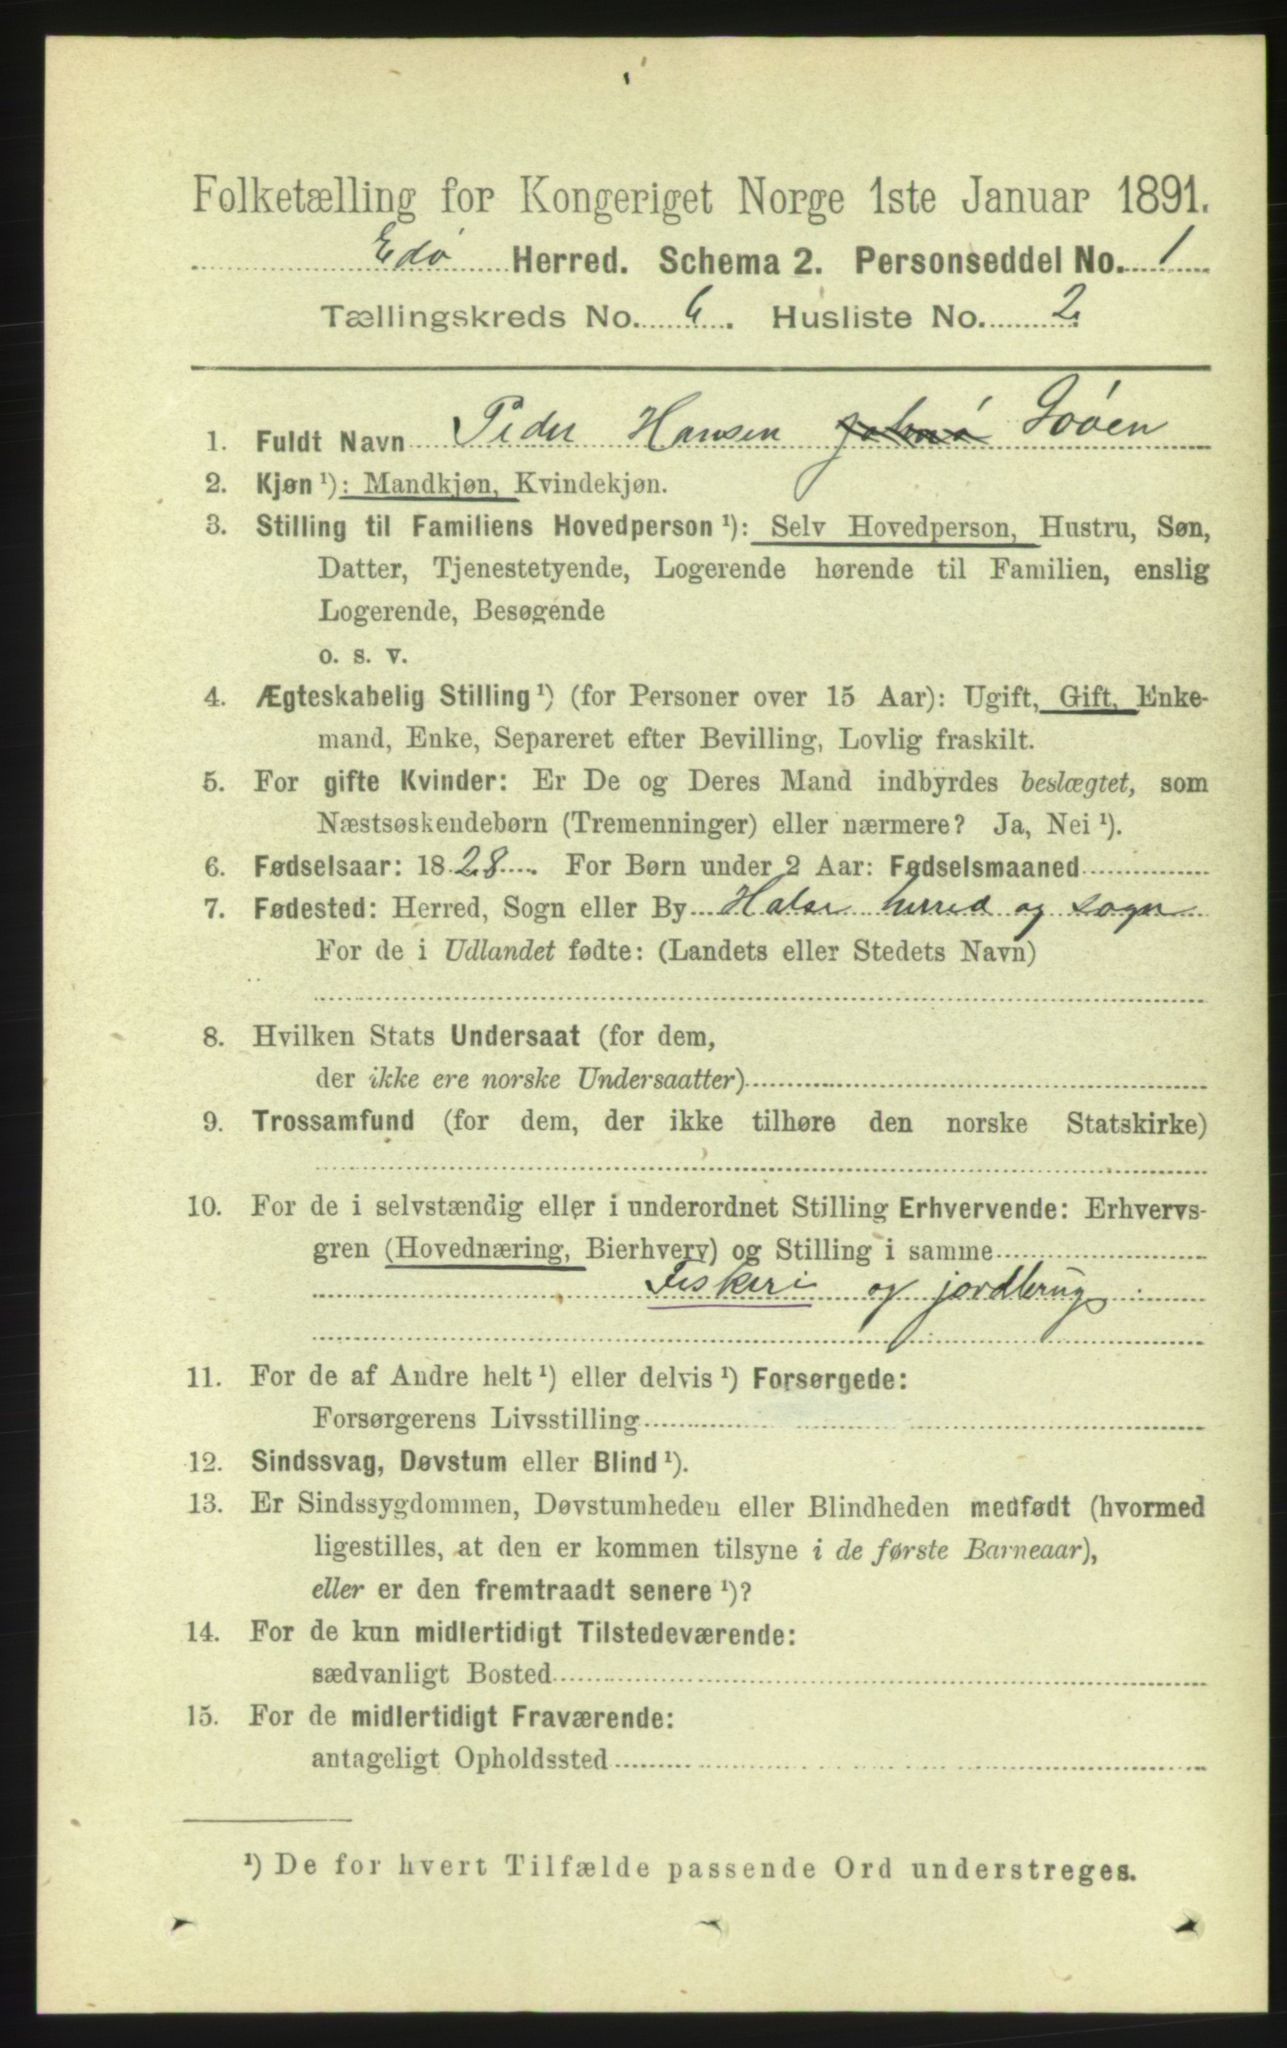 Folketælling for Kongeriget Norge 1ste Januar 1891.
Edø Herred. Schema 2. Personseddel No. 1
Tællingskreds No. 6. Husliste No. 2
1. Fuldt Navn Peder Hansen
2. Kjøn ¹): Mandkjøn, Kvindekjøn.
3. Stilling til Familiens Hovedperson ¹): Selv Hovedperson, Hustru, Søn,
Datter, Tjenestetyende, Logerende hørende til Familien, enslig
Logerende, Besøgende
o. s. v.
4. Ægteskabelig Stilling ¹) (for Personer over 15 Aar): Ugift, Gift, Enke-
mand, Enke, Separeret efter Bevilling, Lovlig fraskilt.
5. For gifte Kvinder: Er De og Deres Mand indbyrdes beslægtet, som
Næstsøskendebørn (Tremenninger) eller nærmere? Ja, Nei ¹).
6. Fødselsaar: 1828. For Børn under 2 Aar: Fødselsmaaned
7. Fødested: Herred, Sogn eller By Halse herred og sogn
For de i Udlandet fødte: (Landets eller Stedets Navn)
8. Hvilken Stats Undersaat (for dem,
der ikke ere norske Undersaatter)
9. Trossamfund (for dem, der ikke tilhøre den norske Statskirke)
10. For de i selvstændig eller i underordnet Stilling Erhvervende: Erhvervs-
gren (Hovednæring, Bierhverv) og Stilling i samme
Fiskeri og jordbrug
11. For de af Andre helt ¹) eller delvis ¹) Forsørgede:
Forsørgerens Livsstilling
12. Sindssvag, Døvstum eller Blind ¹).
13. Er Sindssygdommen, Døvstumheden eller Blindheden medfødt (hvormed
ligestilles, at den er kommen tilsyne i de første Barneaar),
eller er den fremtraadt senere ¹)?
14. For de kun midlertidigt Tilstedeværende:
sædvanligt Bosted
15. For de midlertidigt Fraværende:
antageligt Opholdssted
¹) De for hvert Tilfælde passende Ord understreges.